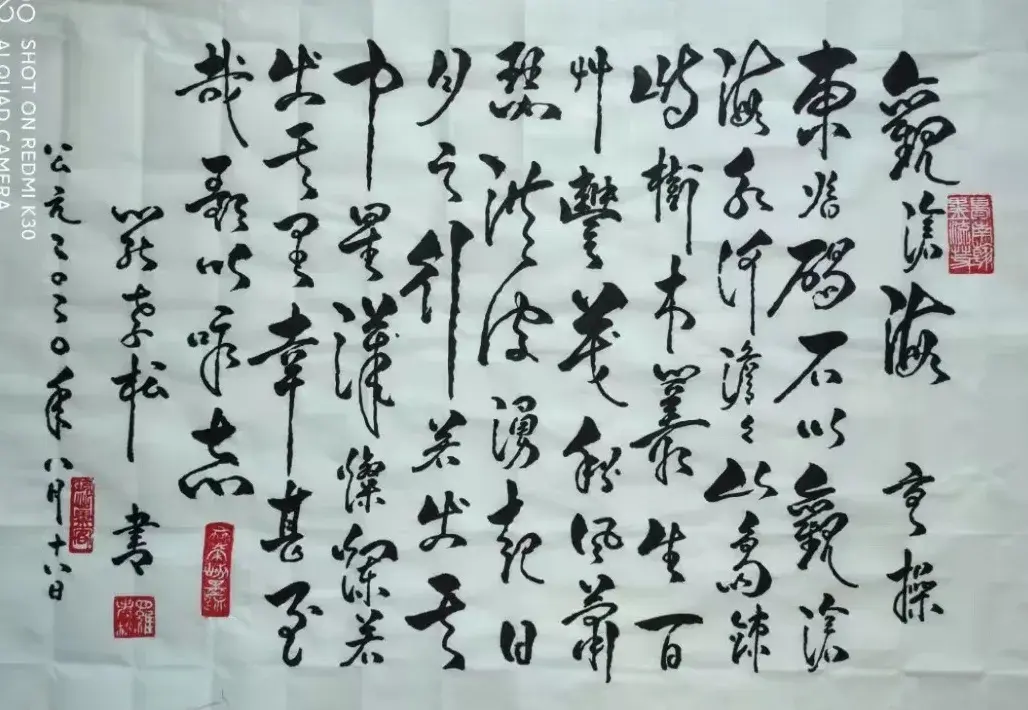 觀滄海 曹操
東臨碣石以觀滄
海水何澹々山島竦
峙樹木叢生百
艸豐茂秋風蕭
瑟洪波湧起日
月之行若出其
中星漢燦爛若
出其里幸甚至
哉歌以咏志
松 書
公元二〇二〇年八月十八日
SHOT ON REDMI K30
AI QUAD CAMERA